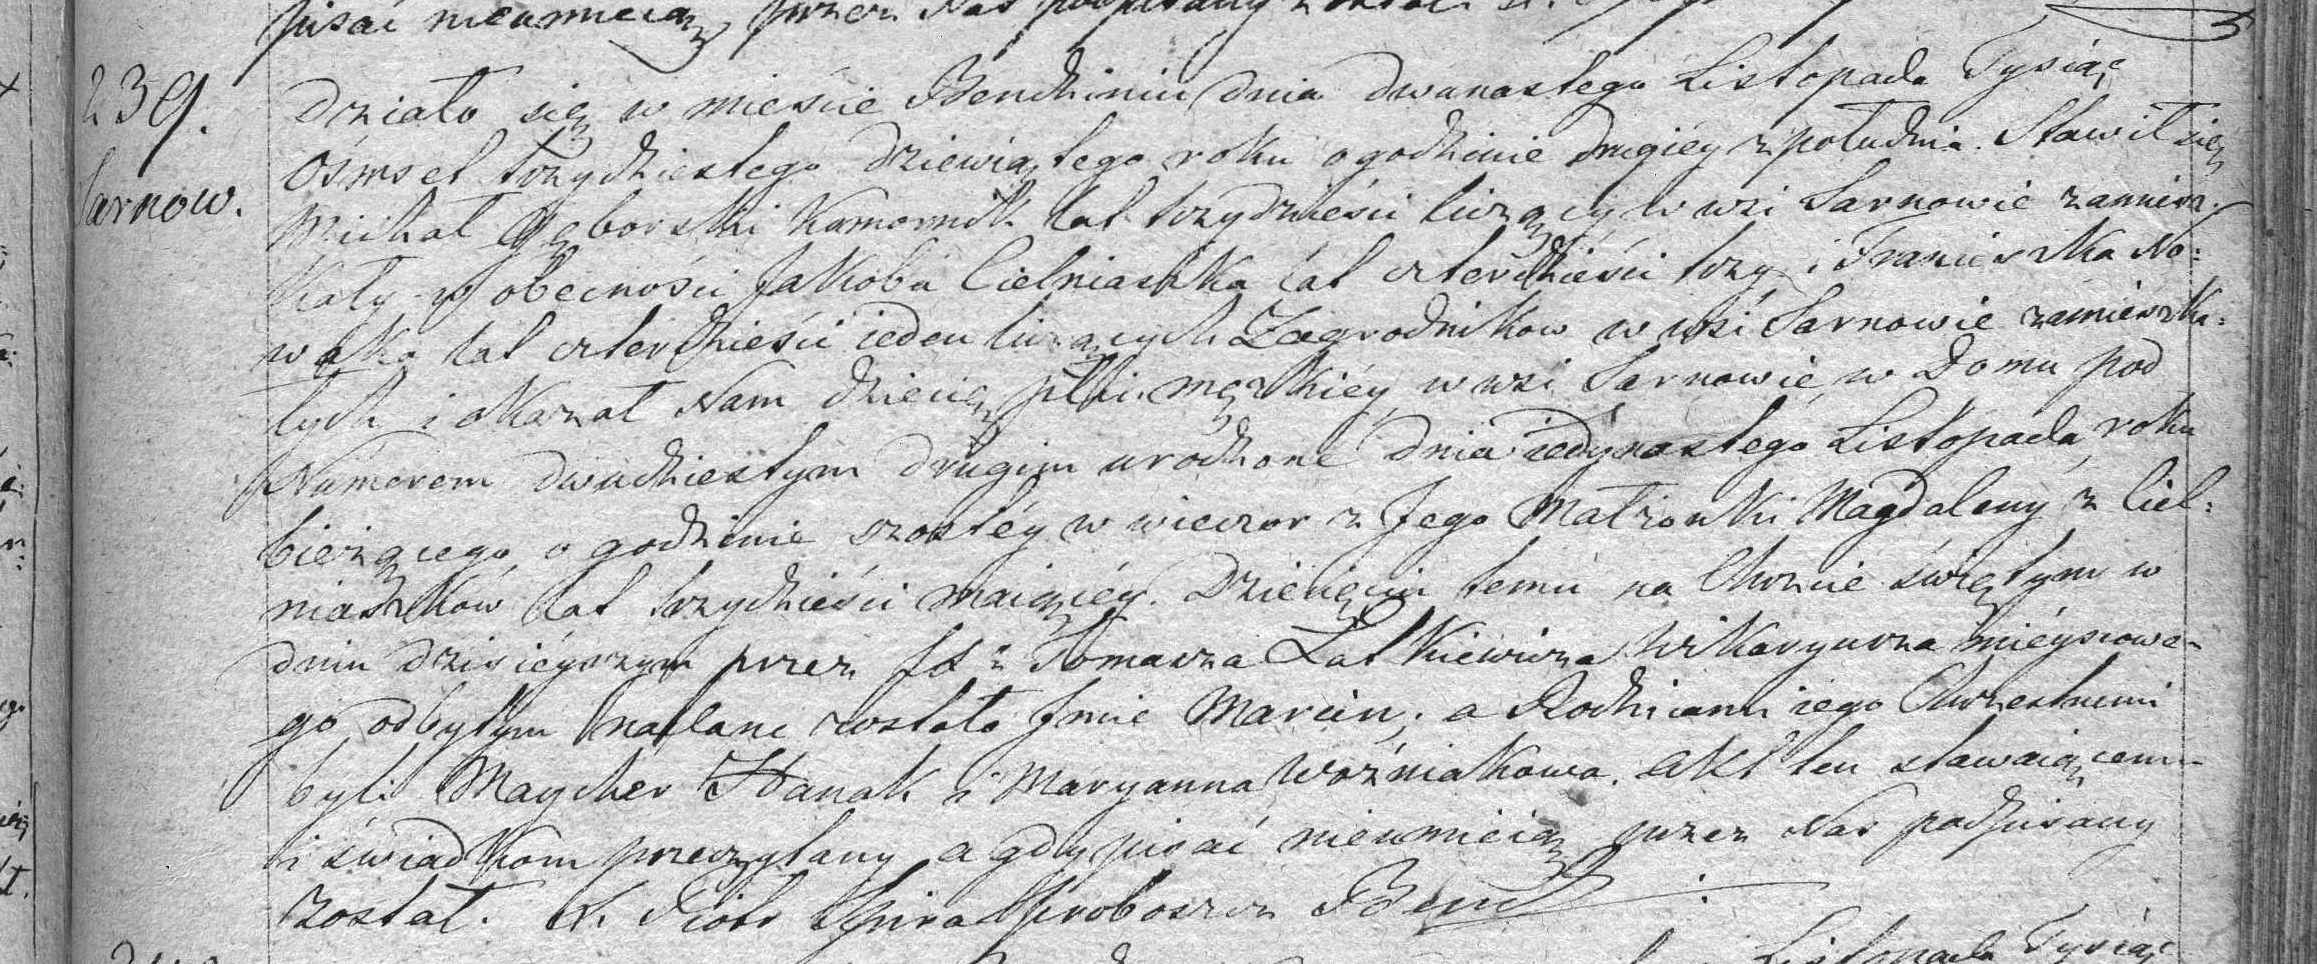 pisać nieumieią przez Nas podpisany został
239. Działo się w mieście Bendzinie dnia dwunastego Listopada Tysiąc
Ośmset trzydziestego dziewiątego roku o godzinie drugiéy z południa. Stawił się
Sarnow. Michał Gęborski Komornik lat trzydzieści liczący w wsi Sarnowie zamiesz-
kały w obecności Jakóba Cielniaszka lat czterdzieści trzy i Franciszka No:
waka lat czterdzieści ieden liczących Zagrodników w wsi Sarnowie zamieszka:
łych i okazał Nam dziecię płci męzkiéy w wsi Sarnowie w Domu pod
Numerem dwudziestym drugim urodzone dnia iedynastego Listopada roku
bieżącego o godzinie szostéy w wieczor z Jego Małżonki Magdaleny z Ciel:
niaszków lat trzydzieści maiącéy. Dziecięciu temu na Chrzcie świętym w
dniu dzisieyszym przez Xdza Tomasza Latkiewicza Wikaryusza mieyscowe-
go odbytym nadane zostało Jmie Marcin, a Rodzicami iego Chrzestnemi
byli Maycher Hanak i Maryanna Woźniakowa. Akt ten stawaiącemu
i świadkom przeczytany a gdy pisać nieumieią przez Nas podpisany
został. X. Piotr Spira Proboszcz Bend
Listopada Tysiąc